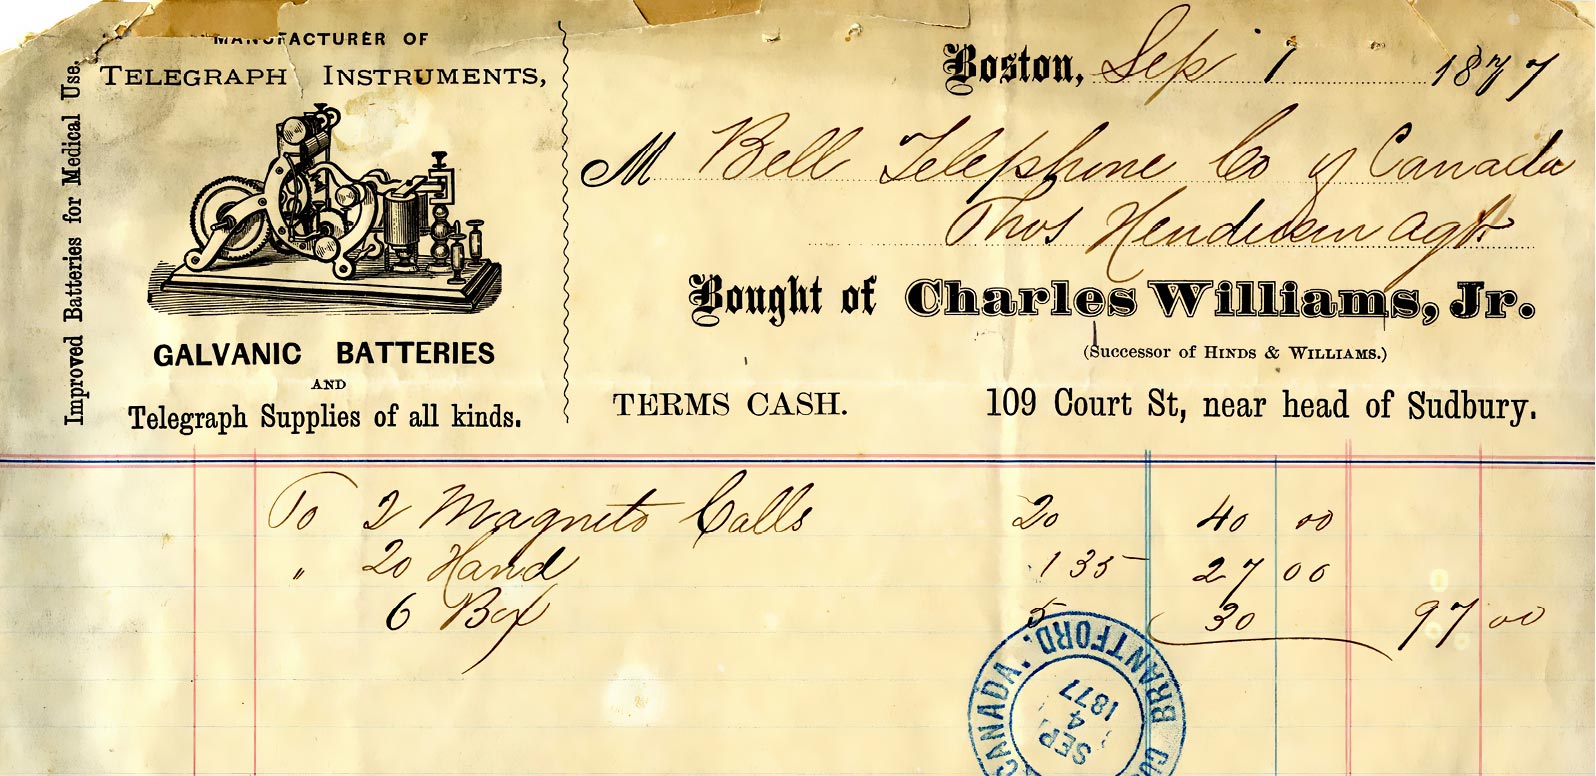 MANUFACTURER OF
TELEGRAPH INSTRUMENTS,
Improved Batteries for Medical Use.
GALVANIC BATTERIES
AND
Telegraph Supplies of all kinds.
Boston, Sep 1 1877
M Bell Telephone Co of Canada
Thos Henderson agt
Bought of Charles Williams, Jr.
(Successor of HINDS & WILLIAMS.)
TERMS CASH. 109 Court St, near head of Sudbury.
To 2 Magneto Calls 20 40 00
" 20 Hand 1 35 27 00
6 Box 5 30 97 00
BRANTFORD. CANADA
SEP. 4
1877